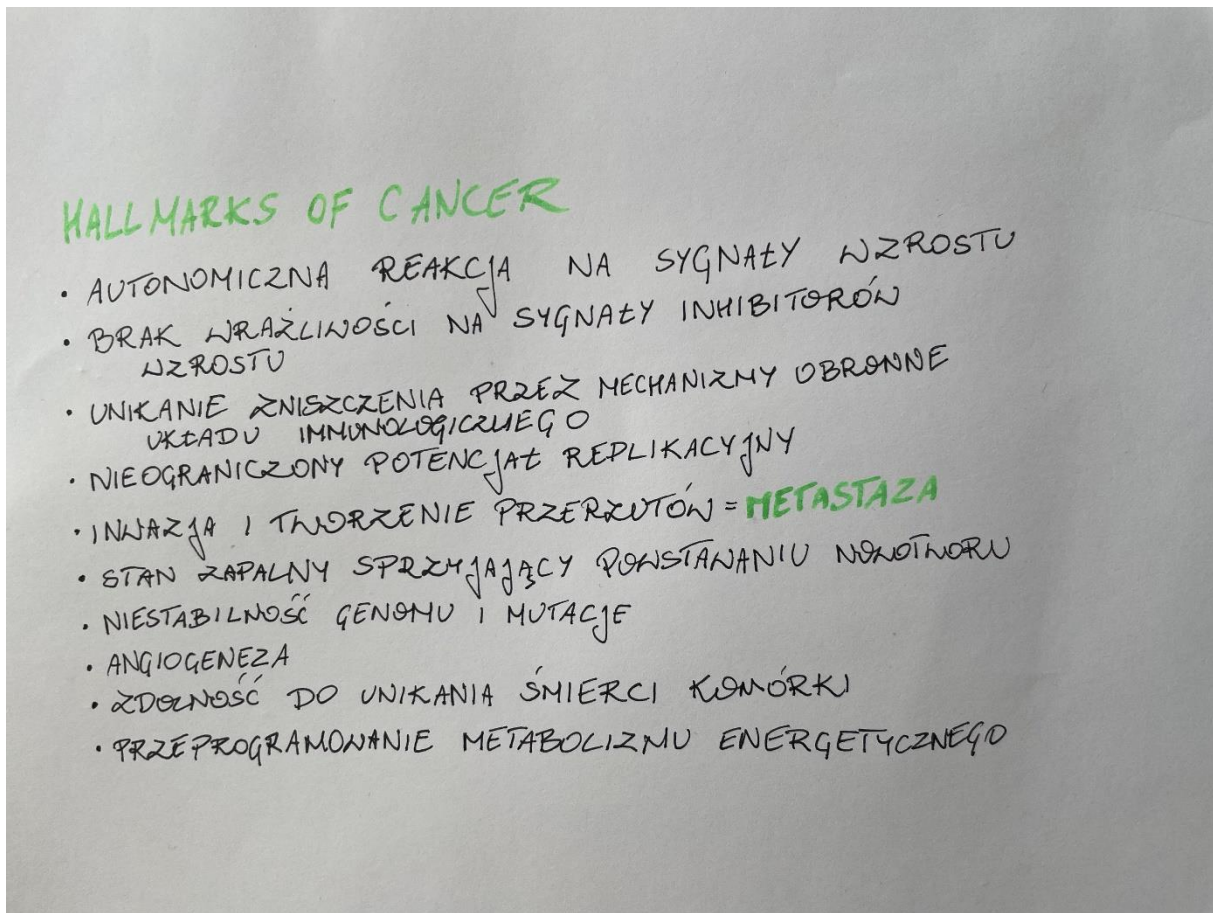 HALLMARKS OF CANCER
• AUTONOMICZNA REAKCJA NA SYGNAŁY WZROSTU
• BRAK WRAŻLIWOŚCI NA SYGNAŁY INHIBITORÓW
WZROSTU
• UNIKANIE ZNISZCZENIA PRZEZ MECHANIZMY OBRONNE
UKŁADU IMMUNOLOGICZNEGO
• NIEOGRANICZONY POTENCJAŁ REPLIKACYJNY
• INWAZJA I TWORZENIE PRZERZUTÓW = METASTAZA
• STAN ZAPALNY SPRZYJAJĄCY POWSTAWANIU NOWOTWORU
• NIESTABILNOŚĆ GENOMU I MUTACJE
• ANGIOGENEZA
• ZDOLNOŚĆ DO UNIKANIA ŚMIERCI KOMÓRKI
• PRZEPROGRAMOWANIE METABOLIZMU ENERGETYCZNEGO